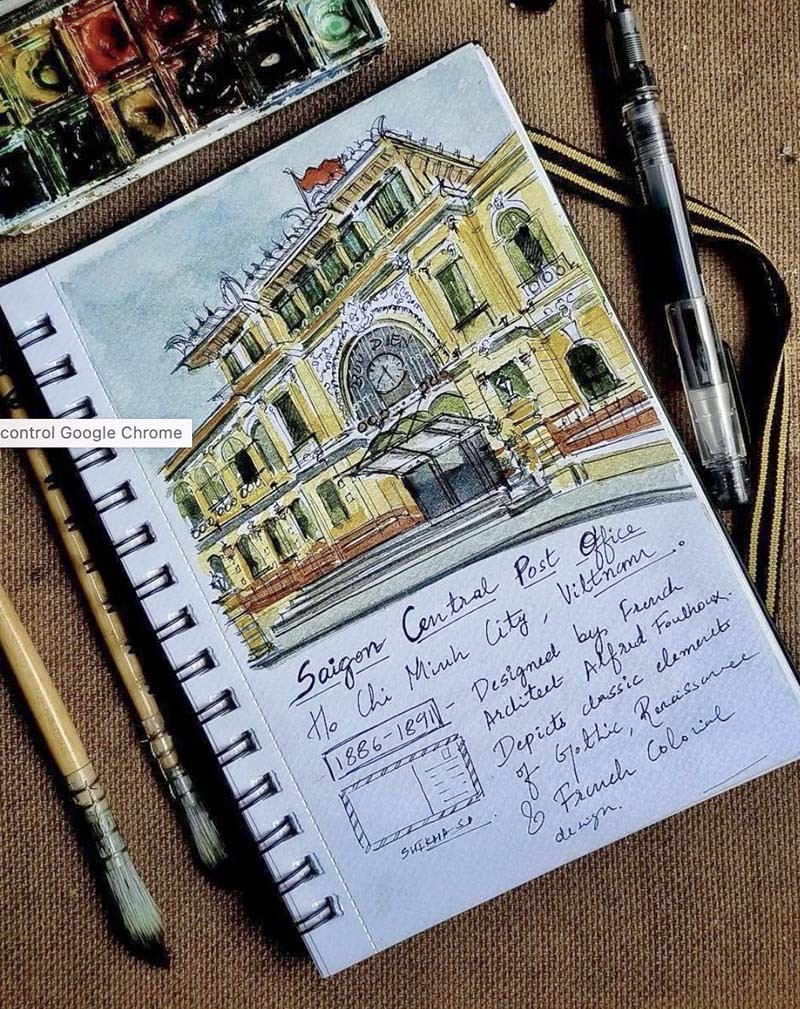 control Google Chrome
BUU DIEN
Saigon Central Post Office
Ho Chi Minh City, Viltnam.
1886-1891 - Designed by French
Architect Alfred Foulhoux.
Depicts classic elements
of Gothic, Renaissance
& French Colonial
design.
SHIKHA SD